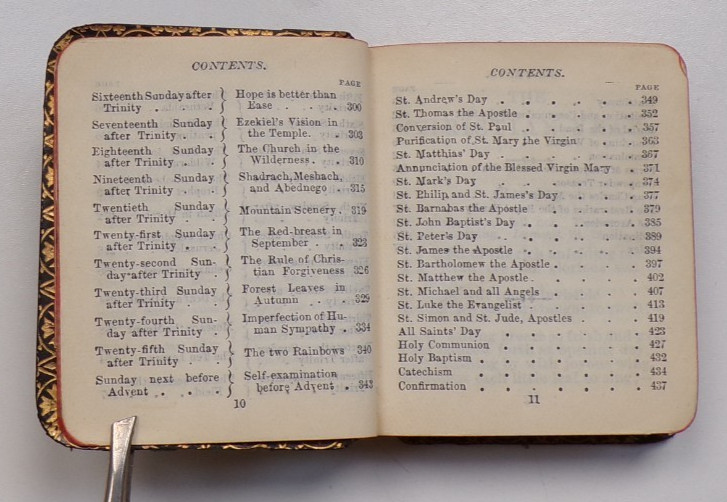 CONTENTS.
PAGE
Sixteenth Sunday after Hope is better than
Trinity . . . Ease . . . . 300
Seventeenth Sunday Ezekiel's Vision in
after Trinity . . the Temple. . 303
Eighteenth Sunday The Church in the
after Trinity . . Wilderness. . 310
Nineteenth Sunday Shadrach, Mesbach,
after Trinity . . and Abednego . 315
Twentieth Sunday
after Trinity . . Mountain Scenery . 319
Twenty-first Sunday The Red-breast in
after Trinity . . September . . 323
Twenty-second Sun- The Rule of Chris-
day after Trinity . tian Forgiveness 326
Twenty-third Sunday Forest Leaves in
after Trinity . . Autumn . . . 329
Twenty-fourth Sun- Imperfection of Hu-
day after Trinity . man Sympathy . 334
Twenty-fifth Sunday
after Trinity . . The two Rainbows 340
Sunday next before Self-examination
Advent . . . before Advent . 343
10
CONTENTS.
PAGE
St. Andrew's Day . . . . . . 349
St. Thomas the Apostle . . . . . 352
Conversion of St. Paul . . . . . 357
Purification of St. Mary the Virgin . . . 363
St. Matthias' Day . . . . . . 367
Annunciation of the Blessed Virgin Mary . 371
St. Mark's Day . . . . . . 374
St. Philip and St. James's Day . . . . 377
St. Barnabas the Apostle . . . . . 379
St. John Baptist's Day . . . . . 385
St. Peter's Day . . . . . . 389
St. James the Apostle . . . . . 394
St. Bartholomew the Apostle . . . . 397
St. Matthew the Apostle . . . . . 402
St. Michael and all Angels . . . . 407
St. Luke the Evangelist . . . . . 413
St. Simon and St. Jude, Apostles . . . 419
All Saints' Day . . . . . . 423
Holy Communion . . . . . . 427
Holy Baptism . . . . . . . 432
Catechism . . . . . . . 434
Confirmation . . . . . . . 437
11